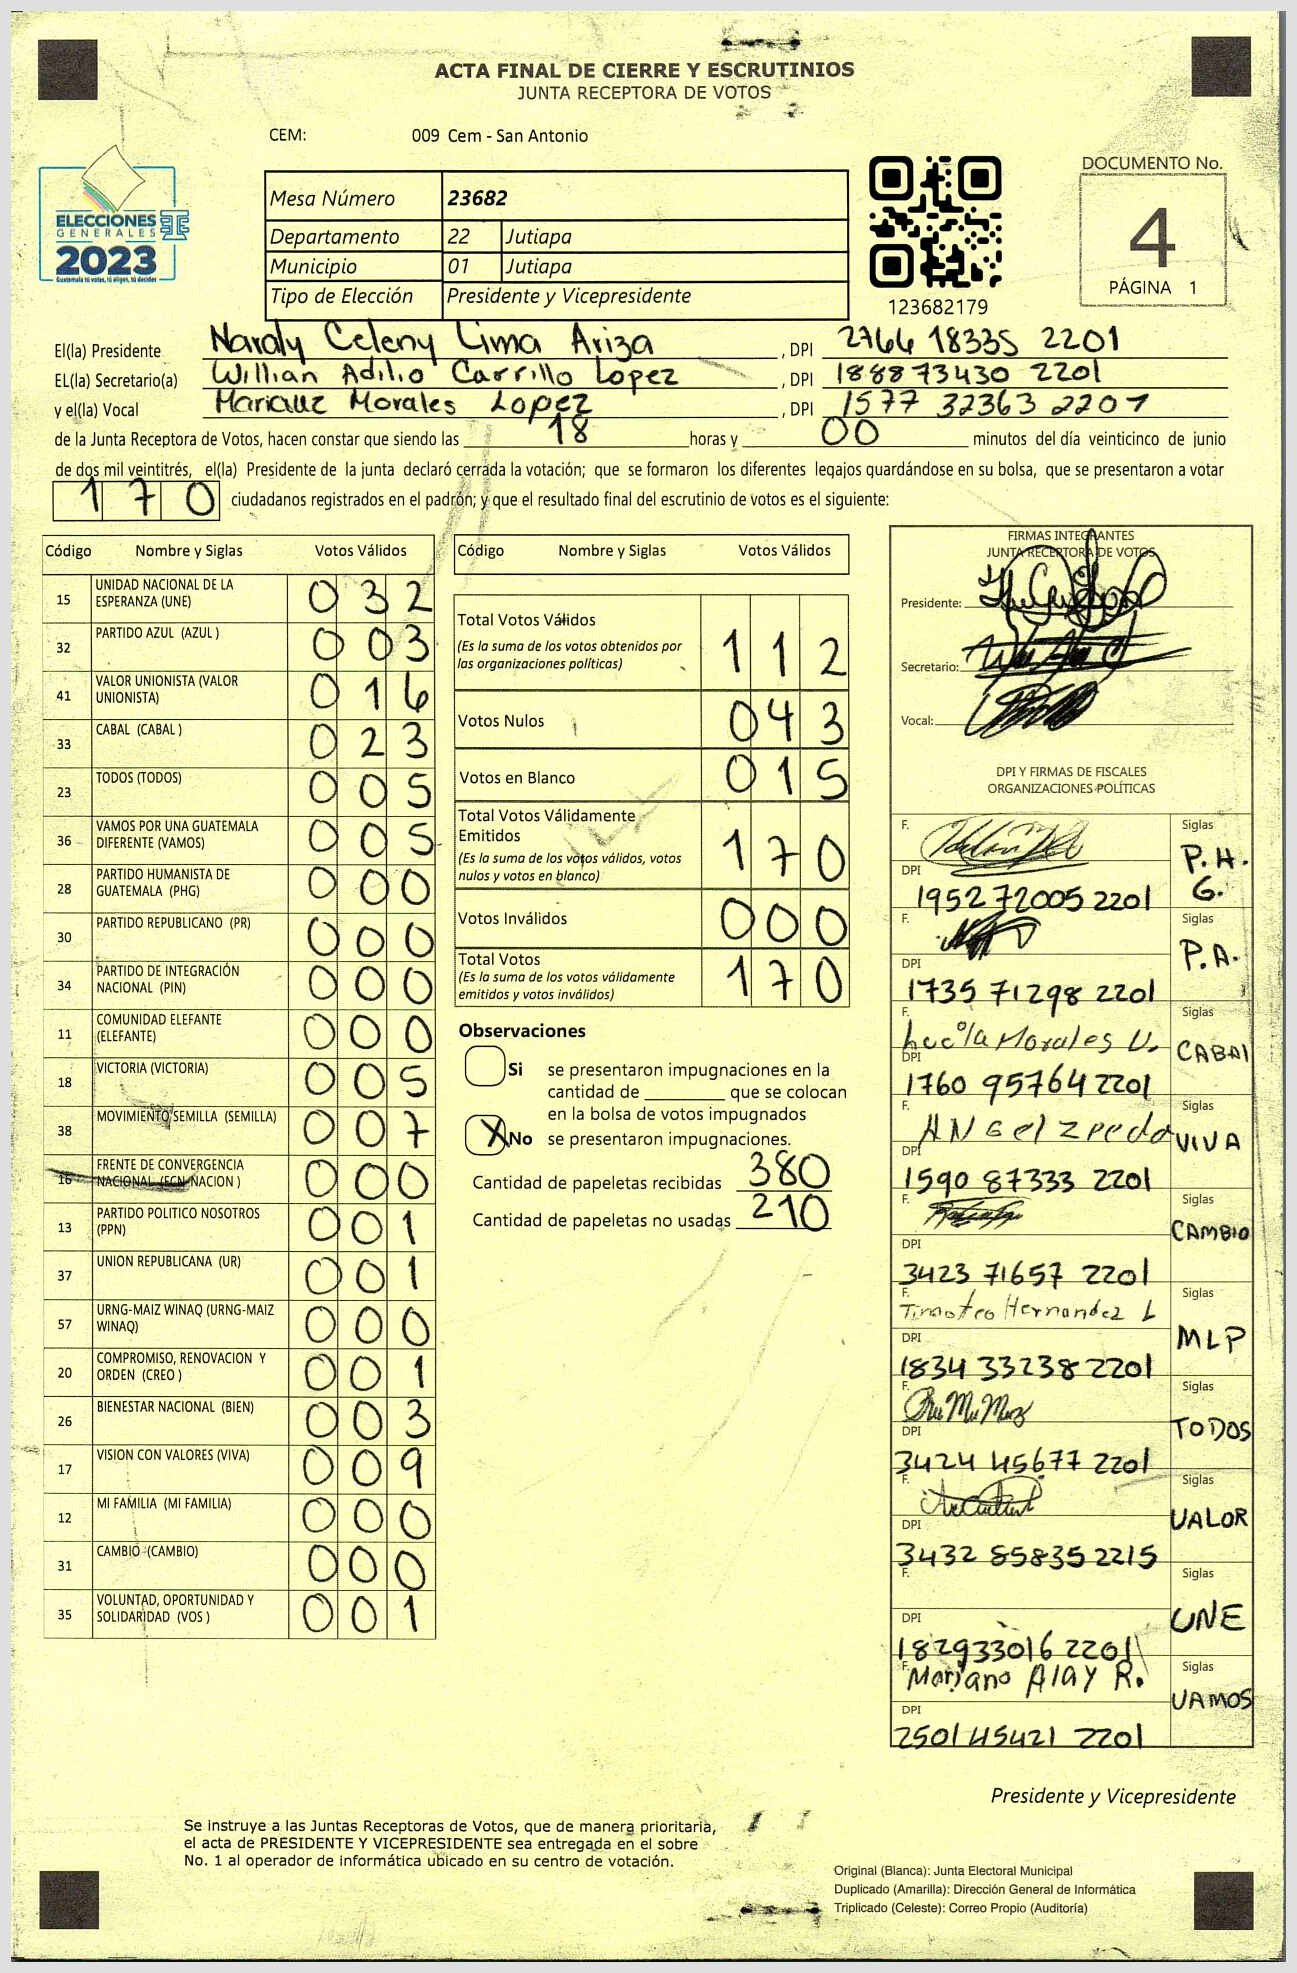 ACTA FINAL DE CIERRE Y ESCRUTINIOS
JUNTA RECEPTORA DE VOTOS
CEM: 009 Cem - San Antonio
ELECCIONES
GENERALES
2023
Guatemala tú votas, tú eliges, tú decides
Mesa Número 23682
Departamento 22 Jutiapa
Municipio 01 Jutiapa
Tipo de Elección Presidente y Vicepresidente
123682179
DOCUMENTO No.
4
PÁGINA 1
El(la) Presidente Naraly Celeny Lima Ariza , DPI 2766 18335 2201
EL(la) Secretario(a) Willian Adilio Carrillo Lopez , DPI 188873430 2201
y el(la) Vocal Morales Lopez , DPI 1577 32363 2201
de la Junta Receptora de Votos, hacen constar que siendo las 18 horas y 00 minutos del día veinticinco de junio
de dos mil veintitrés, el(la) Presidente de la junta declaró cerrada la votación; que se formaron los diferentes legajos quardándose en su bolsa, que se presentaron a votar
170 ciudadanos registrados en el padrón; y que el resultado final del escrutinio de votos es el siguiente:
Código Nombre y Siglas Votos Válidos
15 UNIDAD NACIONAL DE LA ESPERANZA (UNE) 032
32 PARTIDO AZUL (AZUL ) 003
41 VALOR UNIONISTA (VALOR UNIONISTA) 016
33 CABAL (CABAL ) 023
23 TODOS (TODOS) 005
36 VAMOS POR UNA GUATEMALA DIFERENTE (VAMOS) 005
28 PARTIDO HUMANISTA DE GUATEMALA (PHG) 000
30 PARTIDO REPUBLICANO (PR) 000
34 PARTIDO DE INTEGRACIÓN NACIONAL (PIN) 000
11 COMUNIDAD ELEFANTE (ELEFANTE) 000
18 VICTORIA (VICTORIA) 005
38 MOVIMIENTO SEMILLA (SEMILLA) 007
16 FRENTE DE CONVERGENCIA NACIONAL (FCN NACION ) 000
13 PARTIDO POLITICO NOSOTROS (PPN) 001
37 UNION REPUBLICANA (UR) 001
57 URNG-MAIZ WINAQ (URNG-MAIZ WINAQ) 000
20 COMPROMISO, RENOVACION Y ORDEN (CREO ) 001
26 BIENESTAR NACIONAL (BIEN) 003
17 VISION CON VALORES (VIVA) 009
12 MI FAMILIA (MI FAMILIA) 000
31 CAMBIO (CAMBIO) 000
35 VOLUNTAD, OPORTUNIDAD Y SOLIDARIDAD (VOS ) 001
Código Nombre y Siglas Votos Válidos
Total Votos Válidos 112
(Es la suma de los votos obtenidos por
las organizaciones políticas)
Votos Nulos 043
Votos en Blanco 015
Total Votos Válidamente
Emitidos 170
(Es la suma de los votos válidos, votos
nulos y votos en blanco)
Votos Inválidos 000
Total Votos 170
(Es la suma de los votos válidamente
emitidos y votos inválidos)
Observaciones
Si se presentaron impugnaciones en la
cantidad de ________ que se colocan
en la bolsa de votos impugnados
X No se presentaron impugnaciones.
Cantidad de papeletas recibidas 380
Cantidad de papeletas no usadas 210
FIRMAS INTEGRANTES
JUNTA RECEPTORA DE VOTOS
Presidente:
Secretario:
Vocal:
DPI Y FIRMAS DE FISCALES
ORGANIZACIONES POLÍTICAS
F. Siglas P.H.G.
DPI 1952 72005 2201
F. Siglas P.A.
DPI 1735 71298 2201
F. Morales Siglas CABAL
DPI 1760 95764 2201
F. Siglas VIVA
DPI 1590 87333 2201
F. Siglas CAMBIO
DPI 3423 71657 2201
F. Timoteo Hernandez L Siglas MLP
DPI 1834 33238 2201
F. Siglas TODOS
DPI 3424 45677 2201
F. Siglas VALOR
DPI 3432 85835 2215
F. Siglas UNE
DPI 182933016 2201
F. Mariano Alay R. Siglas VAMOS
DPI 2501 45421 2201
Presidente y Vicepresidente
Se instruye a las Juntas Receptoras de Votos, que de manera prioritaria,
el acta de PRESIDENTE Y VICEPRESIDENTE sea entregada en el sobre
No. 1 al operador de informática ubicado en su centro de votación.
Original (Blanca): Junta Electoral Municipal
Duplicado (Amarilla): Dirección General de Informática
Triplicado (Celeste): Correo Propio (Auditoría)